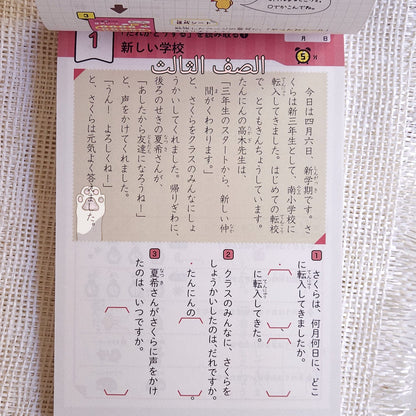 1
「だれがどうする」を読み取る①
月 日
5分
新しい学校
الصف الثالث
今日は四月六日、新学期です。さ
くらは新三年生として、南小学校に
転入してきました。はじめての転校
で、とてもきんちょうしています。
たんにんの高木先生は、
「三年生のスタートから、新しい仲
間がくわわります。」
と、さくらをクラスのみんなにしょ
うかいしてくれました。帰りぎわに、
後ろのせきの夏希さんが、
「あしたから友達になろうね！」
と、声をかけてくれました。
「うん！よろしくね！」
と、さくらは元気よく答
た。
1
さくらは、何月何日に、どこ
に転入してきましたか。
に転入してきた。
2
クラスのみんなに、さくらを
しょうかいしたのは、だれですか。
・たんにんの
3
夏希さんがさくらに声をかけ
たのは、いつですか。